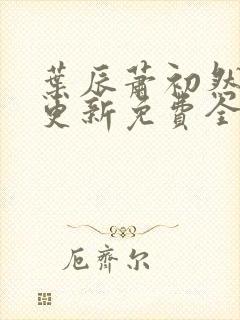 葉辰蕭初然
更新免費全
厄齊尔